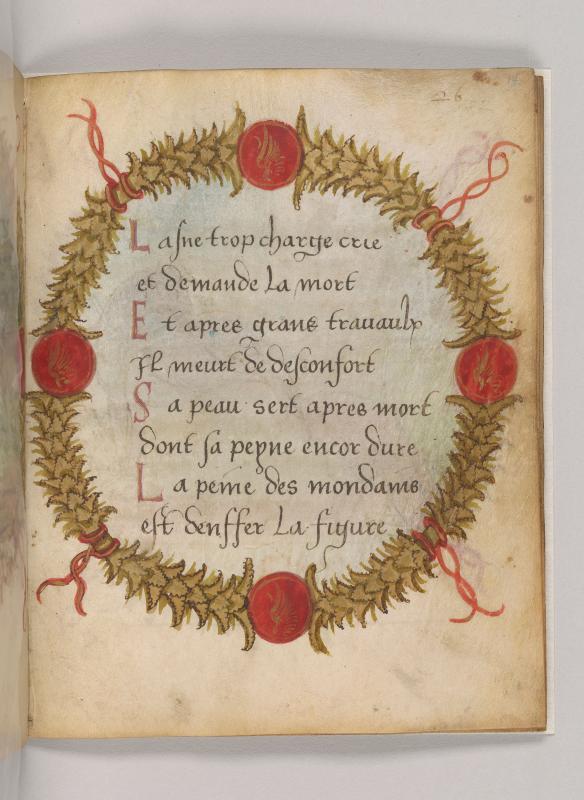 26
Lasne trop charge crie
et demande la mort
Et apres grans travaulx
Il meurt de desconfort
Sa peau sert apres mort
dont sa peyne encor dure
La peine des mondains
est denffer la figure